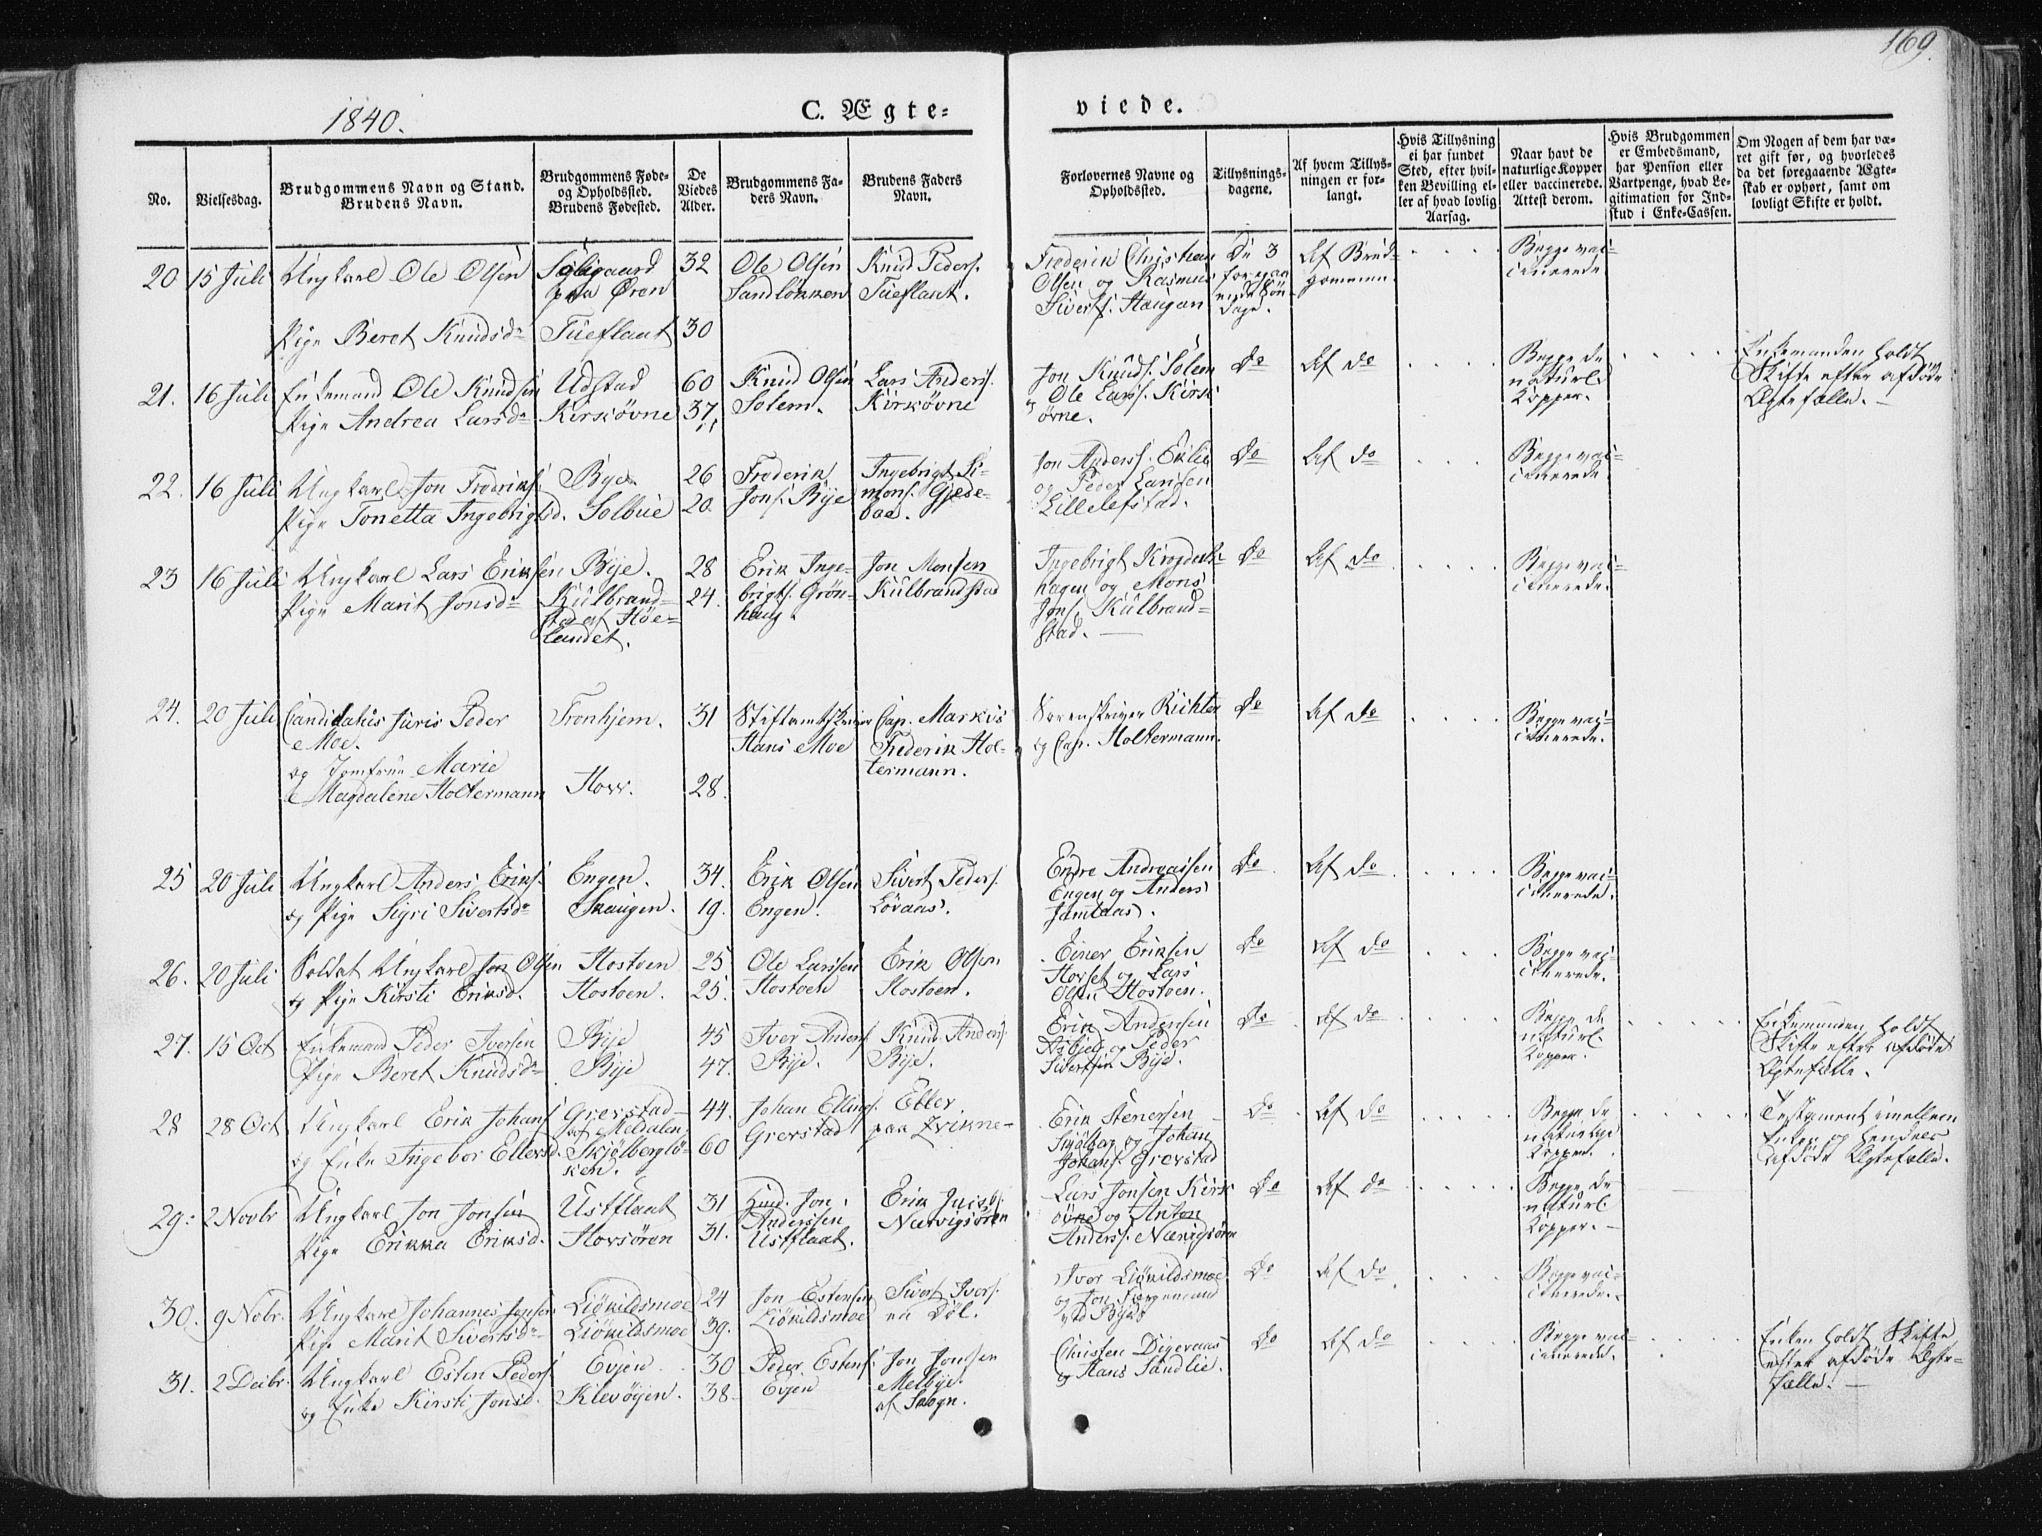 169.
1840.
C. Ægte-
viede.
No.
Vielsesdag.
Brudgommens Navn og Stand.
Brudens Navn.
Brudgommens Føde-
og Opholdssted.
Brudens Fødested.
De
Viedes
Alder.
Brudgommens Fa-
ders Navn.
Brudens Faders
Navn.
Forlovernes Navne og
Opholdssted.
Tillysnings-
dagene.
Af hvem Tillys-
ningen er for-
langt.
Hvis Tillysning
ei har fundet
Sted, efter hvil-
ken Bevilling el-
ler af hvad lovlig
Aarsag.
Naar havt de
naturlige Kopper
eller vaccinerede.
Attest derom.
Hvis Brudgommen
er Embedsmand,
har Pension eller
Vartpenge, hvad Le-
gitimation for Ind-
skud i Enke-Cassen.
Om Nogen af dem har væ-
ret gift før, og hvorledes
da det foregaaende Ægte-
skab er ophørt, samt om
lovligt Skifte er holdt.
20 15 Juli Ungkarl Ole Olsen
Pige Beret Knudsd
paa Øren
Tüeflaat
32
30
Ole Olsen
Sandløkken
Knud Peders.
Tüeflaat.
Frederik Christian
Olsen og Rasmus
Siverts. Haugan
De 3
foregaa
ende Søn
dage.
Af Brud-
gommen.
Begge vac-
cinerede
21. 16 Juli Enkemand Ole Knudsen
Pige Andrea Larsd
Udstad
Kirkøvne
60
37
Knud Olsen
Solem.
Lars Anders.
Kirkøvne
Jon Knuds. Solem
og Ole Lars. Kirk
øvne.
Do
Af do
Begge de
naturl
Kopper.
Enkemanden holdt
Skifte efter afdøde
Ægtefælle.
22. 16 Juli Ungkarl Jon Fredriks.
Pige Tonetta Ingebrigtsd.
Bye
Solbue
26
20.
Frederik
Jons. Bye
Ingebrigt Si-
mons. Gjede-
baa.
Jon Anders. Eklie
og Peder Larsen
Lillelefstad.
Do
Af do
Begge vac-
cinerede
23 16 Juli Ungkarl Lars Eriksen
Pige Marit Jonsd
Bye.
Külbrand-
stad af Høe-
landet.
28
24.
Erik Inge-
brigts. Grøn-
haug.
Jon Monsen
Külbrandstad
Ingebrigt Krogdals-
hagen og Mons
Jons. Külbrand-
stad.
Do
Af do
Begge vac-
cinerede.
24. 20 Juli Candidatus Juris Peder
Moe.
og Jomfrue Marie
Magdalene Holtermann
Tronhjem.
Hovr.
31
28.
Stiftamtskriver
Hans Moe
Cap. Markus
Frederik Hol-
termann.
Sorenskriver Richter
og Cap. Holtermann.
Do
Af do
Begge vac-
cinerede.
25 20 Juli Ungkarl Anders Eriks.
og Pige Sigri Sivertsd
Engen.
Skaugen.
34.
19.
Erik Olsen
Engen.
Sivert Peders.
Løvaas.
Endre Andreassen
Engen og Anders
Jamtaas.
Do.
Af do
Begge vac-
cinerede.
26. 20 Juli Soldat Ungkarl Jon Olsen
og Pige Kirsti Eriksd.
Hostoen
Hostoen.
25
25.
Ole Larssen
Hostoen
Erik Olsen
Hostoen.
Einer Eriksen
Horset og Lars
Olsen Hostoen.
Do
Af do
Begge vac-
cinerede.
27. 15 Oct Enkemand Peder Iversen
Pige Beret Knudsd
Bye
Bye
45
47.
Iver Anders.
Bye.
Knud Anders.
Bye.
Erik Andersen
og Peder
Sivertsen Bye.
Do
Af do
Begge de
naturl.
Kopper.
Enkemanden holdt
Skifte efter afdøde
Ægtefælle.
28 28 Oct Ungkarl Erik Johans
og Enke Ingebor Ellersd.
Grevstad
af Meldalen
Skjølbergløk-
ken.
44.
60
Johan Ellings.
Grevstad
Eller
paa Qvikne
Erik Stenersen
Skølberg og Johan
Johans. Grevstad
Do
Af do
Begge de
naturlige
Kopper.
Testament imellem
Enken og hendes
afdøde Ægtefælle.
29. 2 Novbr Ungkarl Jon Jonsen
Pige Erikka Eriksd.
Ustflaat
Hovsøren
31
31.
Jon
Anderssen
Ustflaat.
Erik Jacobs.
Nævigsøren
Lars Jonsen Kirk
øvne og Anton
Anders. Nævigsøren
Do
Af do
Begge de
naturl
Kopper.
30. 9 Nobr. Ungkarl Johannes Jonsen
Pige Marit Sivertsd
Liøkildsmoe
Liøkildsmoe
24
39.
Jon Estensen
Liøkildsmoe
Sivert Ivers.
en Døl.
Iver Liøkildsmoe
og Jon
ved Bye
Do
Af do
Begge vac-
cinerede.
31. 2 Decbr. Ungkarl Esten Peders
og Enke Kirsti Jonsd.
Evjen
Klevøyen.
30
38
Peder Estens.
Evjen
Jon Jonsen
Melbye.
af Sogn.
Christen Digeraas
og Hans Sandlie.
Do
Af do
Begge vac-
cinerede.
Enken holdt Skifte
efter afdøde Ægte-
fælle.